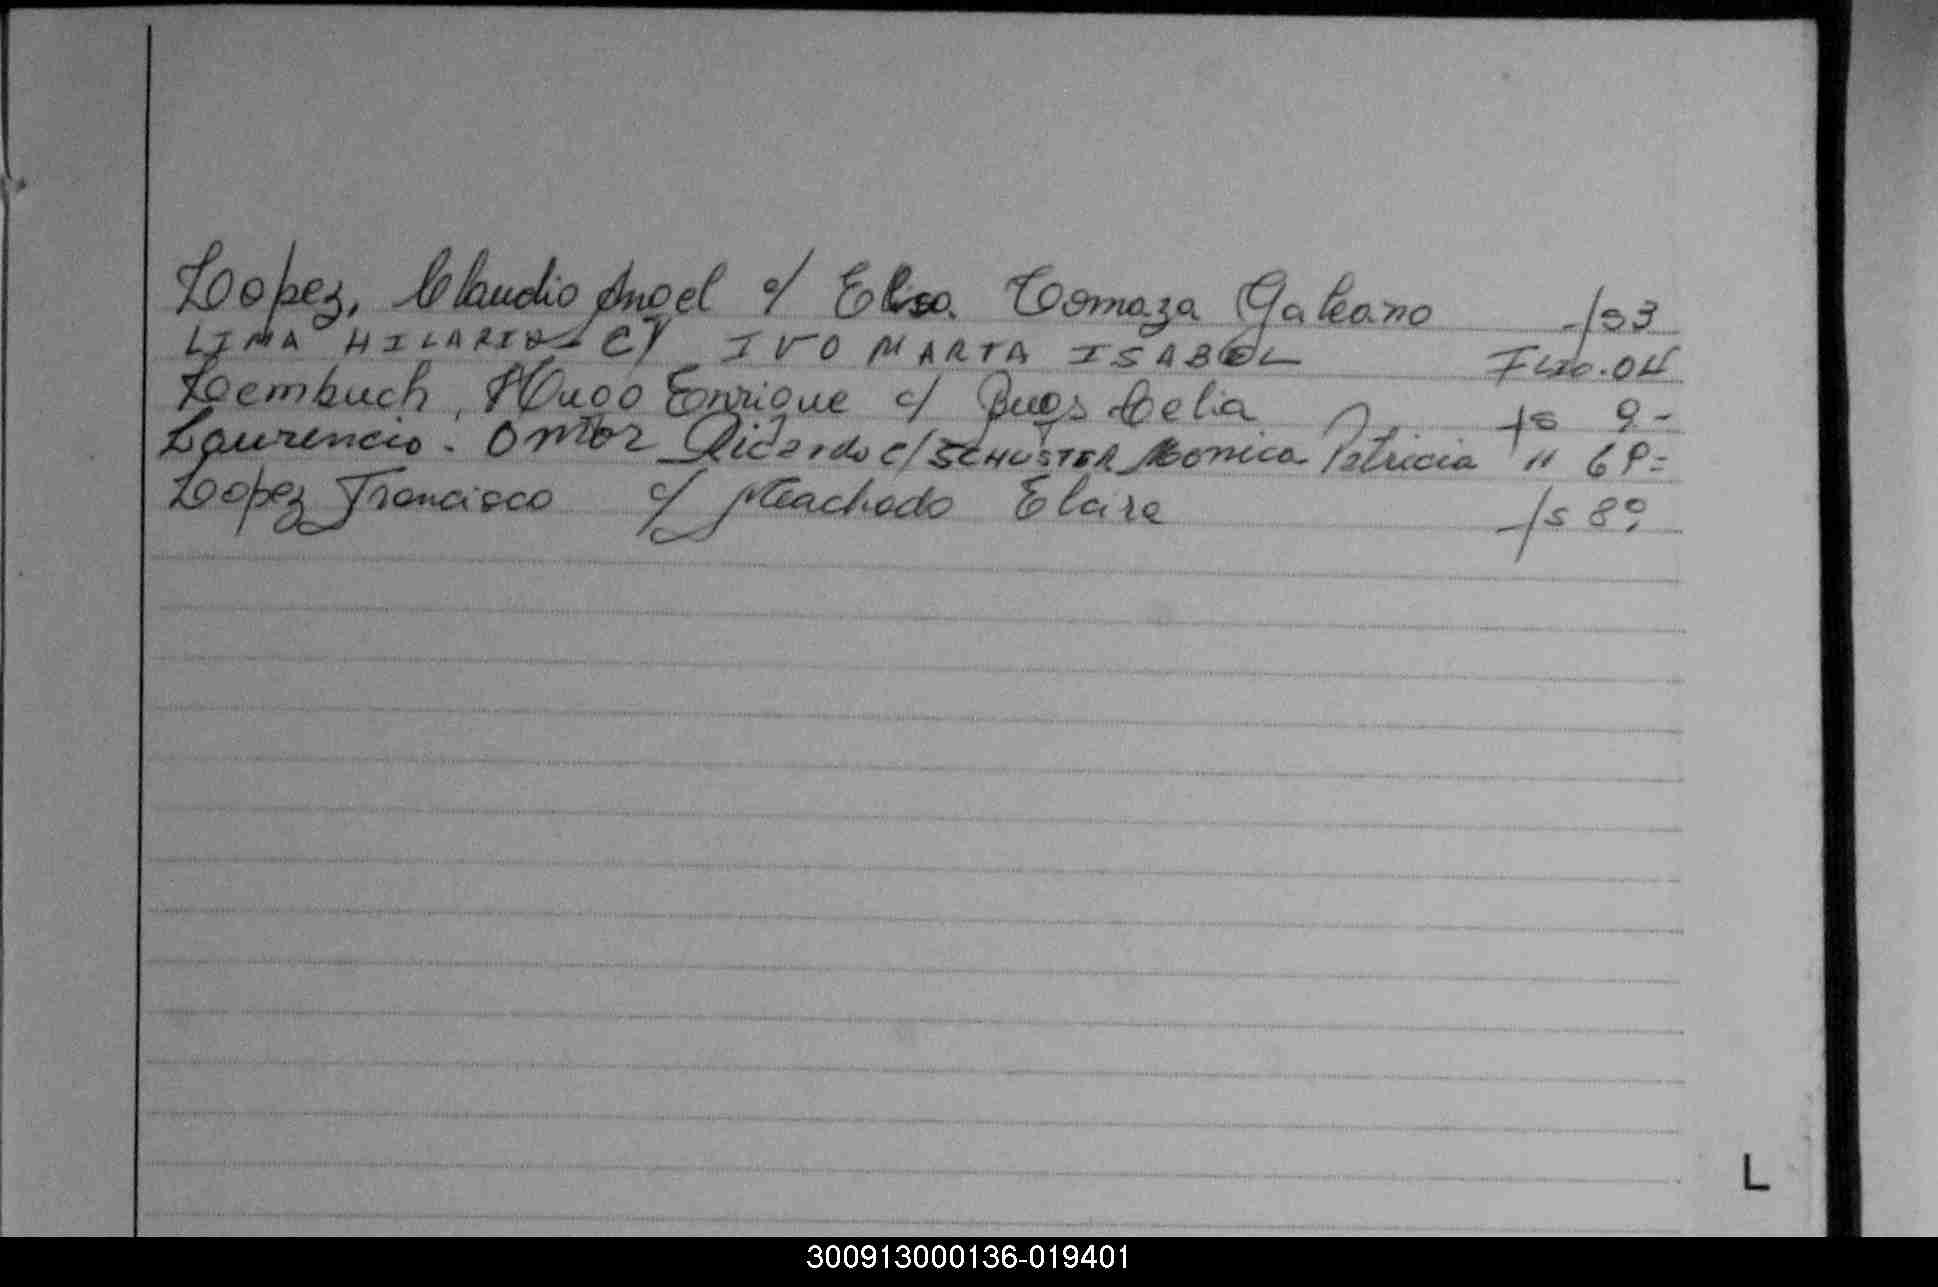 Lopez, Claudio Angel c/ Elsa Tomaza Galeano fs 3
LIMA HILARIO C/ IVO MARTA ISABEL Flio. 04
Lembuch, Hugo Enrique c/ Bugs Celia fs 9-
Laurencio. Omar Ricardo c/ SCHUSTER Monica Patricia "
Lopez Francisco c/ Machado Elaire fs
L
300913000136-019401